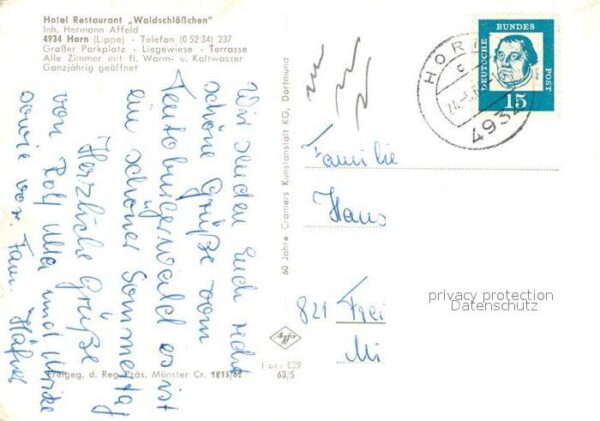 Hotel Restaurant „Waldschlößchen"
Inh. Hermann Affeld
4934 Horn (Lippe) - Telefon (0 52 34) 237
Großer Parkplatz - Liegewiese - Terrasse
Alle Zimmer mit fl. Warm- u. Kaltwasser
Ganzjährig geöffnet
Wir senden Euch recht
schöne Grüße vom
Teutoburgerwald es ist
ein schöner Sommertag
Herzliche Grüße
von Rolf Ulla und Ulrike
sowie von Fam. Häfner
Freigeg. d. Reg. Präs. Münster Cr. 1211/62
60 Jahre Cramers Kunstanstalt KG, Dortmund
63/5
DEUTSCHE
BUNDES
POST
15
HORN
c
4934
Familie
Hans
821 Frei
Mi
privacy protection
Datenschutz